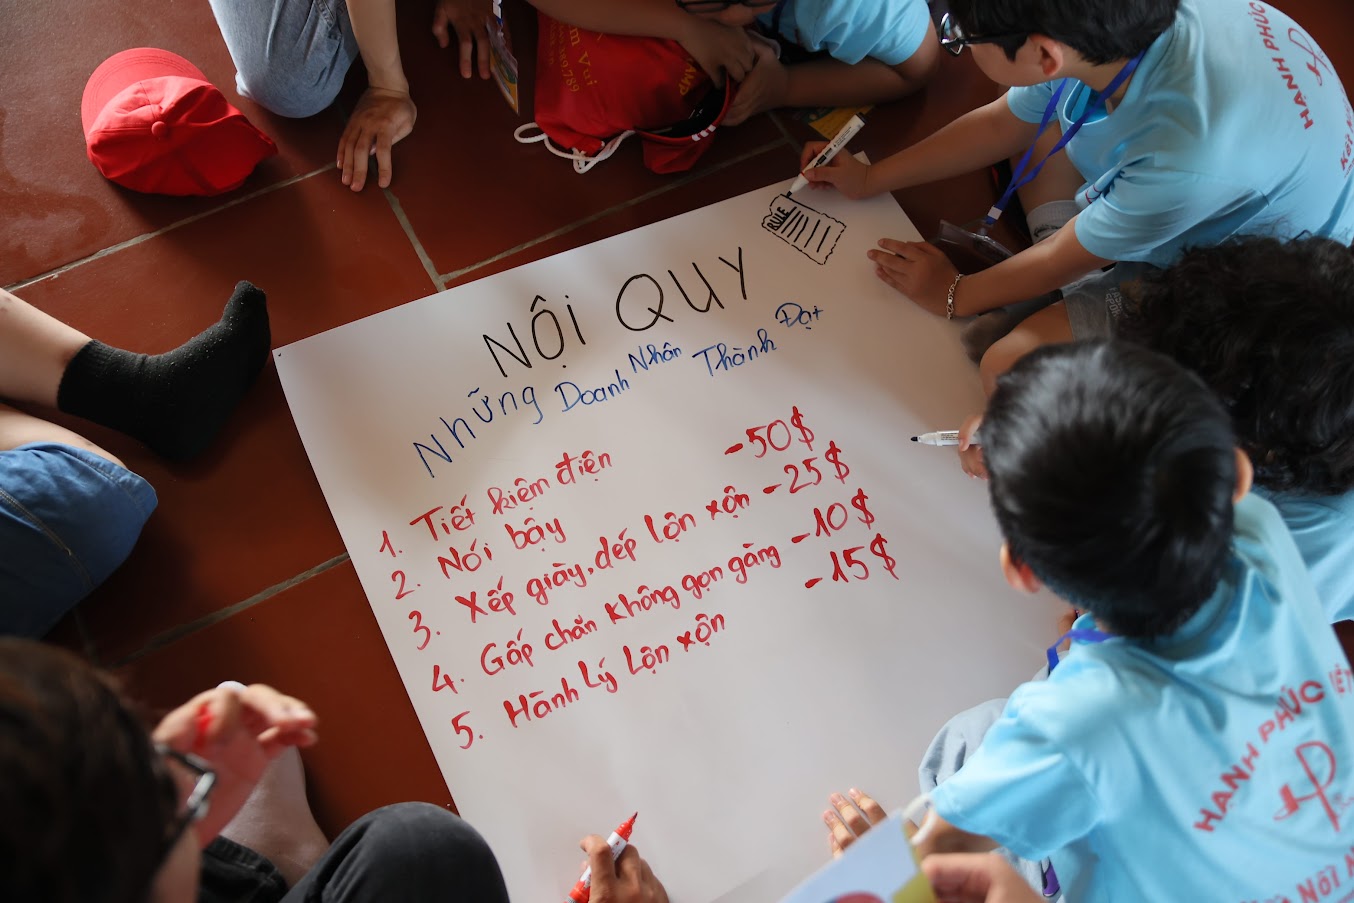 RULE
NỘI QUY
Những Doanh Nhân Thành Đạt
1. Tiết kiệm điện -50$
2. Nói bậy -25$
3. Xếp giày, dép lộn xộn -10$
4. Gấp chăn không gọn gàng -15$
5. Hành Lý Lộn xộn
HẠNH PHÚC
HẠNH PHÚC